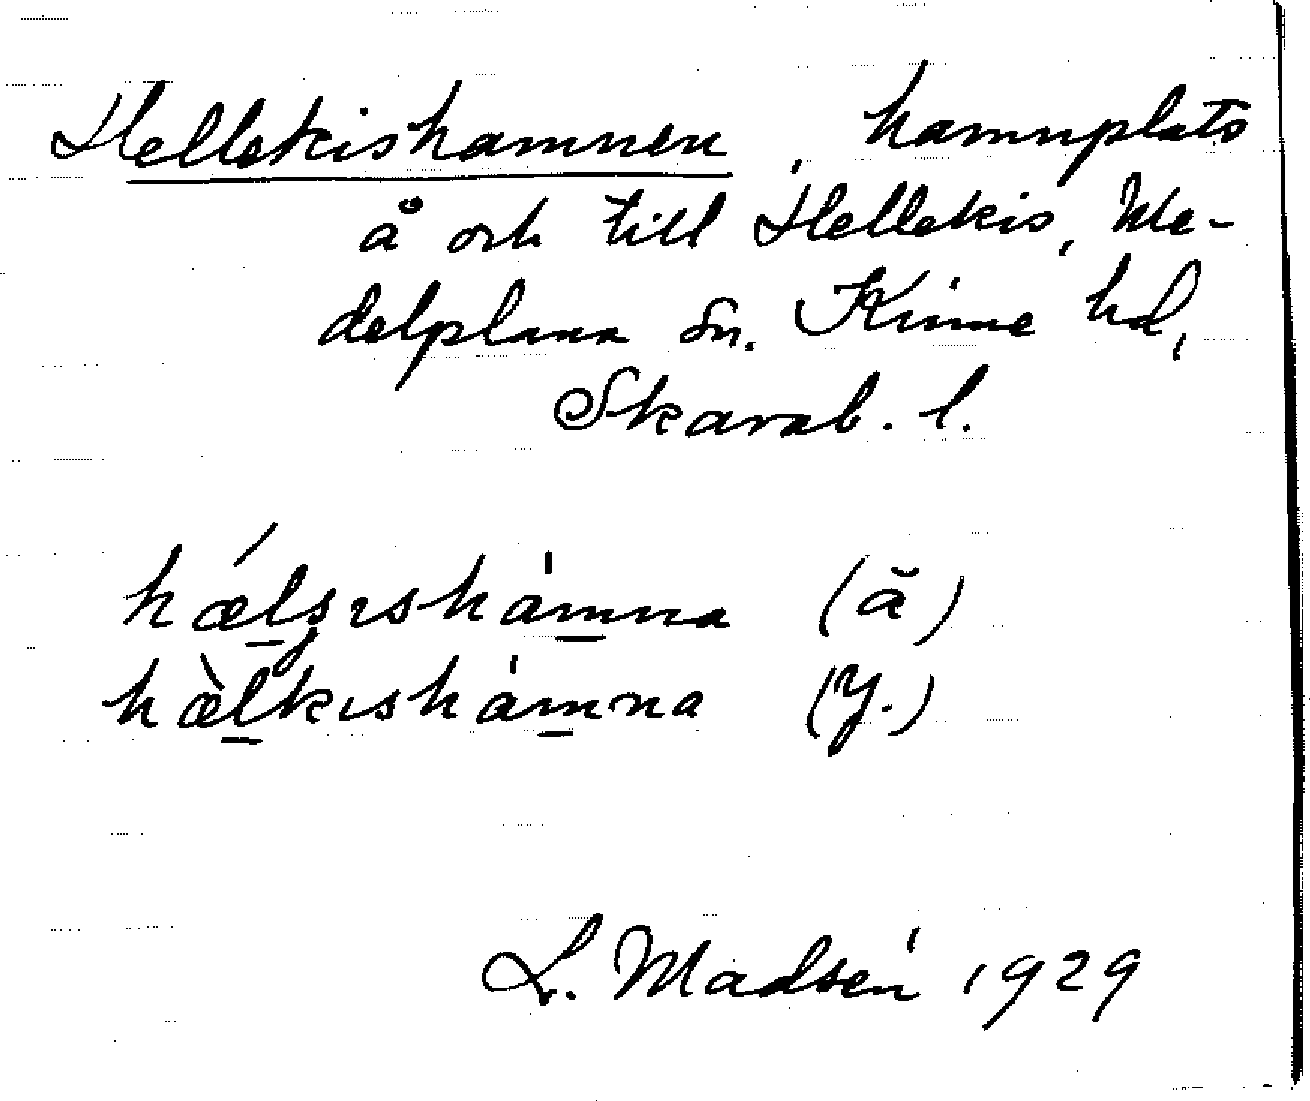 Hellekishamnen, hamnplats
å och till Hellekis, Me-
delplana sn. Kinne hd,
Skarab. l.
hǽlşıshámna (ă)
hæ̀lkıshámna (y.)
L. Madsén 1929